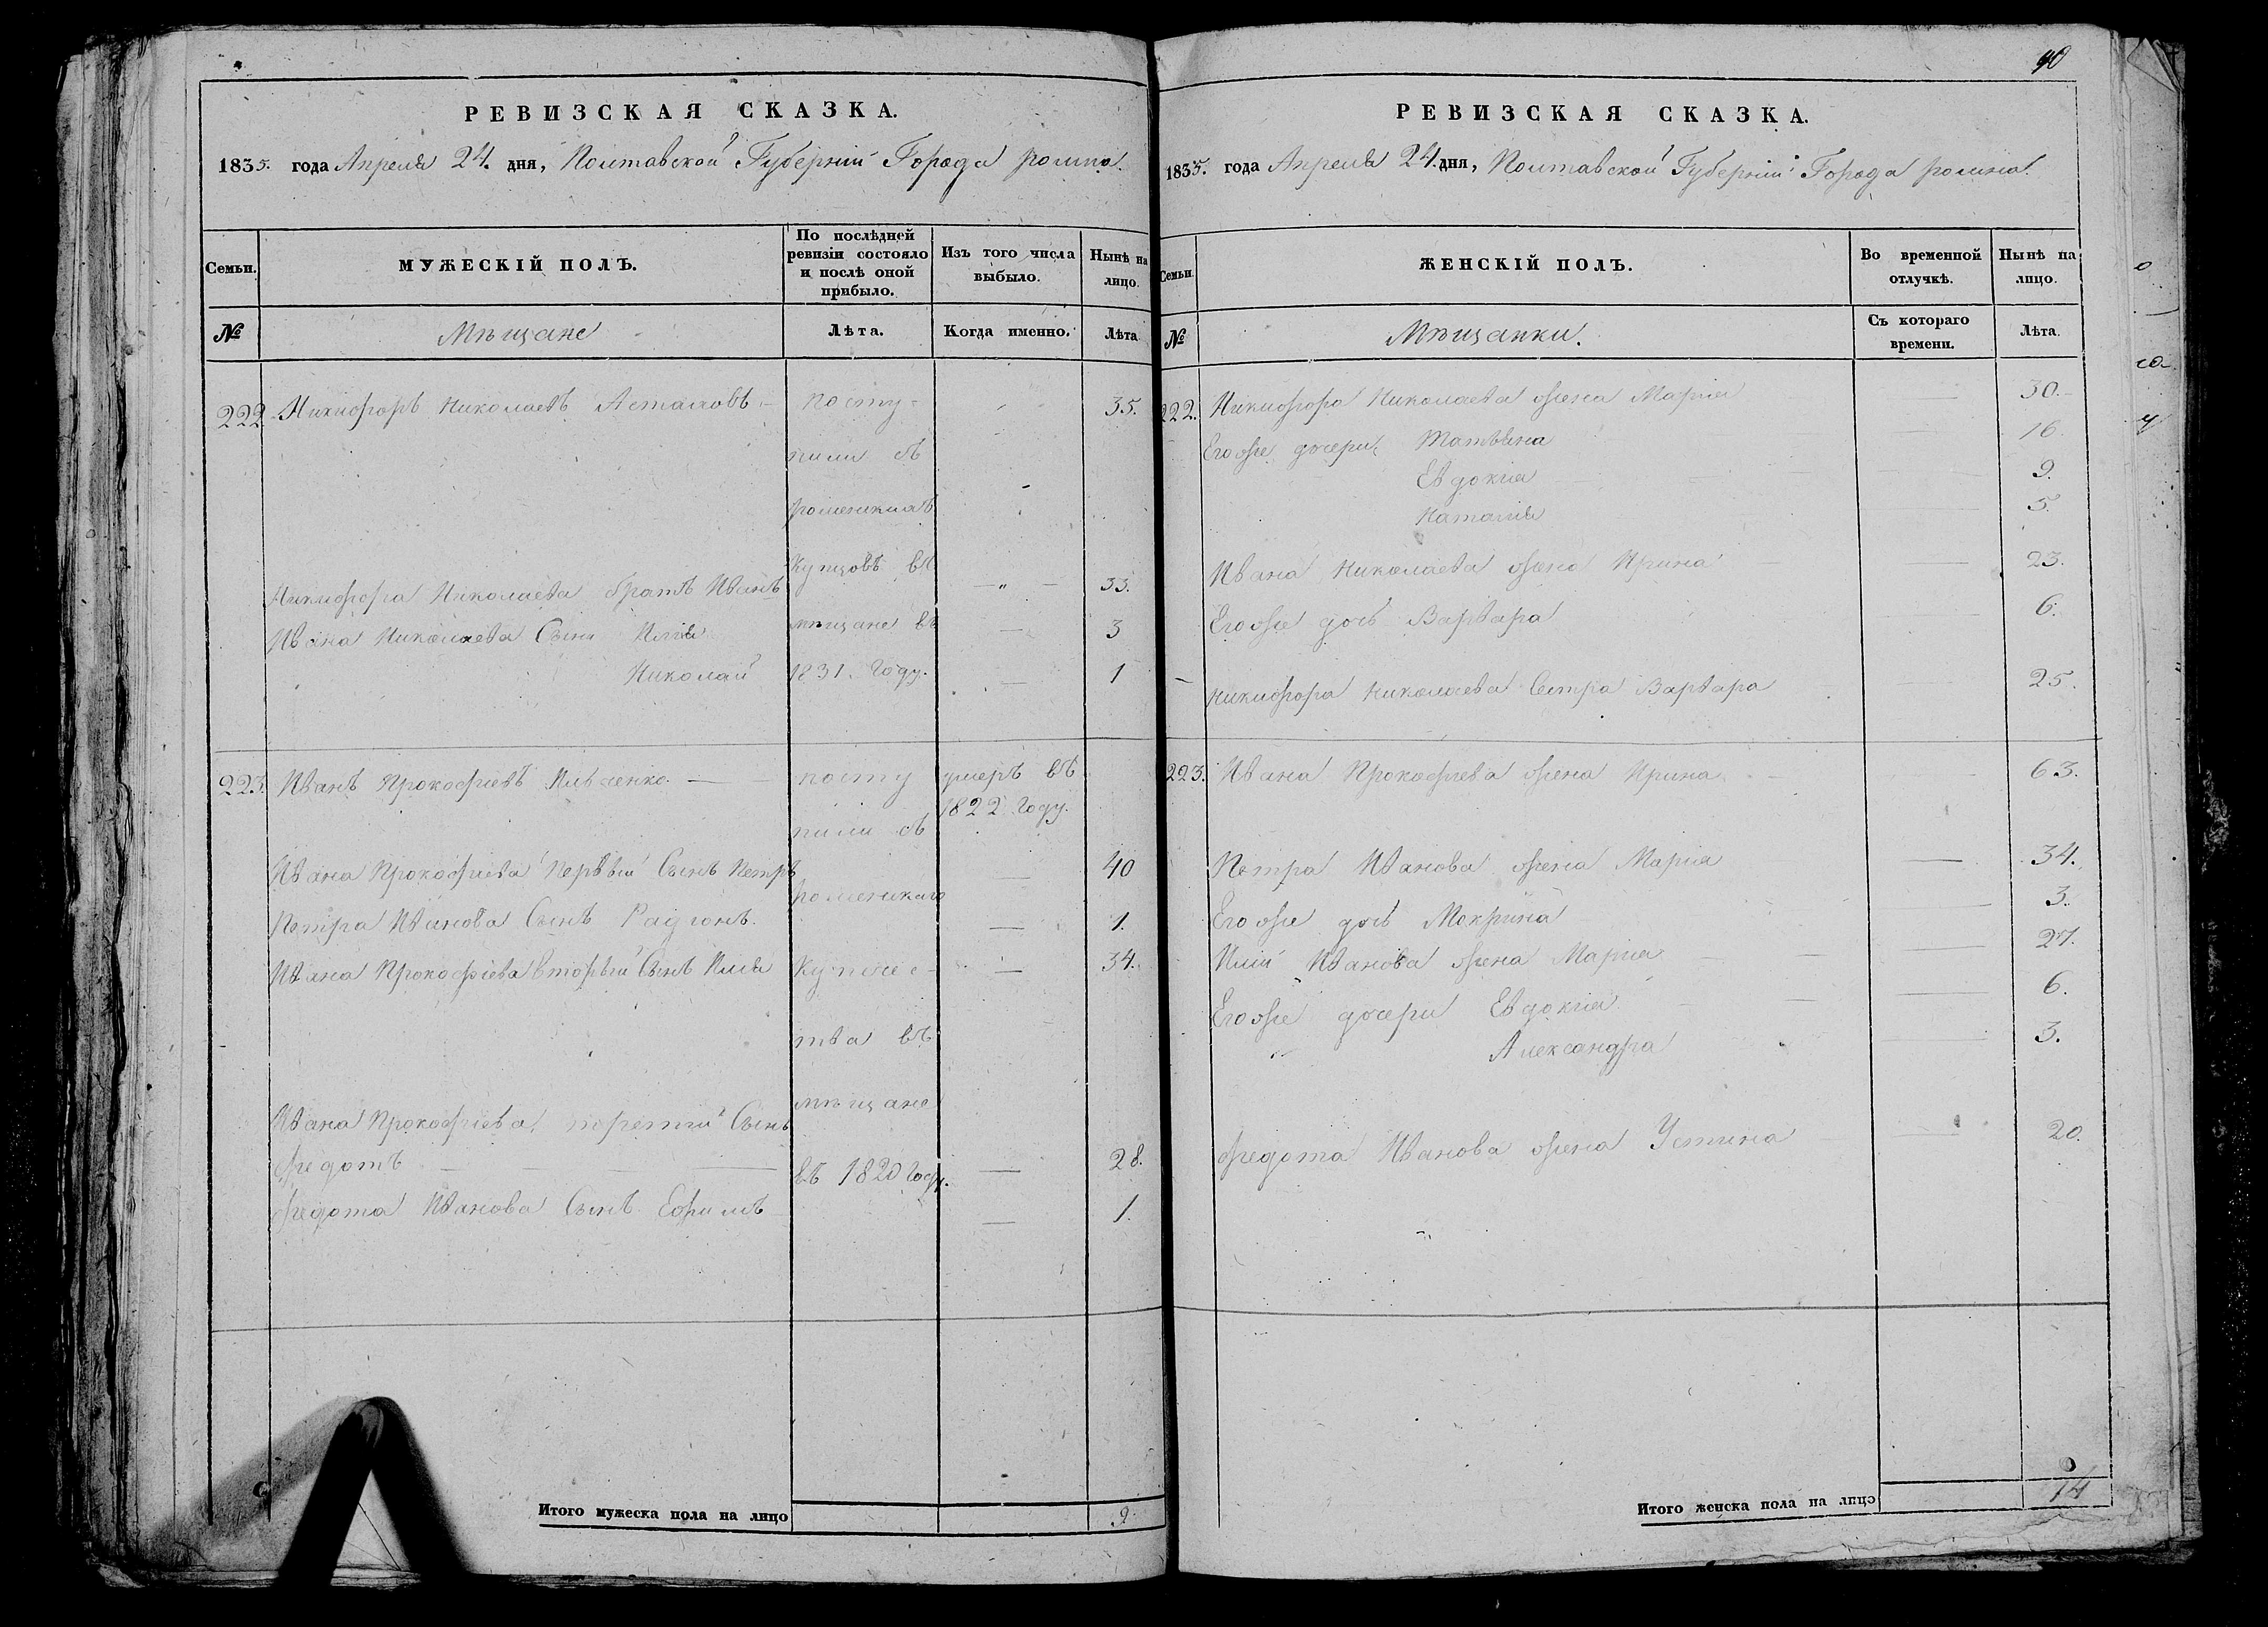 РЕВИЗСКАЯ СКАЗКА.
1835. года Апреля 24. дня, Полтавской Губерніи Города ромна.
Семьи.
МУЖЕСКІЙ ПОЛЪ.
По послѣдней ревизіи состояло и послѣ оной прибыло.
Изъ того числа выбыло.
Нынѣ на лицо.
№
Мѣщане
Лѣта.
Когда именно.
Лѣта
222. Никифоръ Николаевъ
посту-
35.
пили съ
роменскихъ
Купцовъ въ
Никифора Николаева братъ Иванъ
33.
Ивана Николаева Сыны Илія
мѣщане въ
3
Николай
1831. Году.
1
223. Иванъ Прокофіевъ Ильченко.
посту
умеръ въ
1822 Году.
пили съ
Ивана Прокофіева первый Сынъ Петръ
40
роменскаго
Петра Иванова Сынъ Радіонъ.
1.
Ивана Прокофіева вторый Сынъ Илья
Купече-
34.
тва въ
Ивана Прокофіева третій Сынъ
мѣщане
Федотъ
въ 1820 Году.
28.
Федота Иванова Сынъ Ефимъ
1.
Итого мужеска пола на лицо
9.
40
РЕВИЗСКАЯ СКАЗКА.
1835. года Апреля 24. дня, Полтавской Губерніи Города ромна.
Семьи.
ЖЕНСКІЙ ПОЛЪ.
Во временной отлучкѣ.
Нынѣ на лицо.
№
Мѣщанки.
Съ котораго времени.
Лѣта.
222. Никифора Николаева жена Марія
30.
Его же дочери
16
Евдокія
9.
Наталія
5.
Ивана Николаева жена Ирина
23.
Его же дочь Варвара
6.
Никифора Николаева Сестра Варвара
25.
223. Ивана Прокофіева жена Ирина
63.
Петра Иванова жена Марія
34.
Его же дочь Мокрина
3.
Иліи Иванова жена Марія
27.
Его же дочери Евдокія
6.
Александра
3.
Федота Иванова жена Устина
20.
Итого женска пола на лицо
14